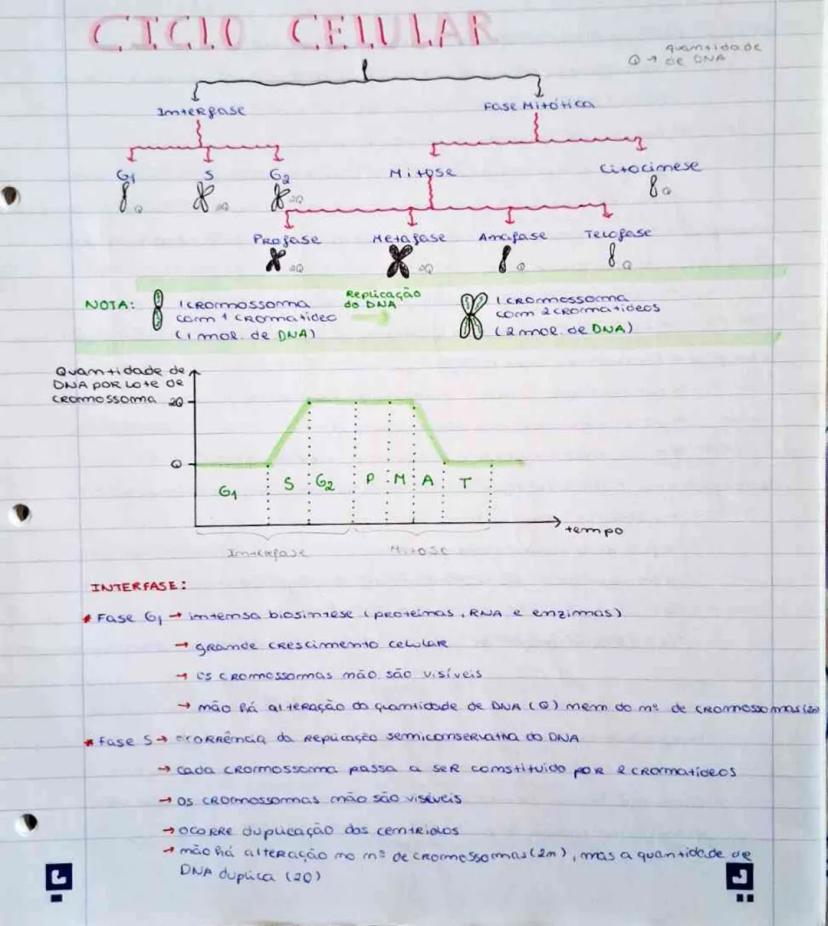 CICLO CELULAR
Q → quantidade de DNA
Interfase
Fase Mitótica
G1
S
G2
Mitose
Citocinese
Q
2Q
2Q
Q
Profase
Metafase
Anafase
Telofase
2Q
2Q
Q
Q
NOTA:
1 cromossoma
com 1 cromatídeo
(1 mol. de DNA)
Replicação
do DNA
1 cromossoma
com 2 cromatídeos
(2 mol. de DNA)
Quantidade de
DNA por lote de
cromossoma
2Q
Q
G1
S
G2
P
M
A
T
tempo
Interfase
Mitose
INTERFASE:
* Fase G1 → intensa biosíntese (proteínas, RNA e enzimas)
→ grande crescimento celular
→ os cromossomas não são visíveis
→ não há alteração da quantidade de DNA (Q) nem do nº de cromossomas (2n)
* Fase S → ocorrência da replicação semiconservativa do DNA
→ cada cromossoma passa a ser constituído por 2 cromatídeos
→ os cromossomas não são visíveis
→ ocorre duplicação dos centríolos
→ não há alteração no nº de cromossomas (2n), mas a quantidade de
DNA duplica (2Q)